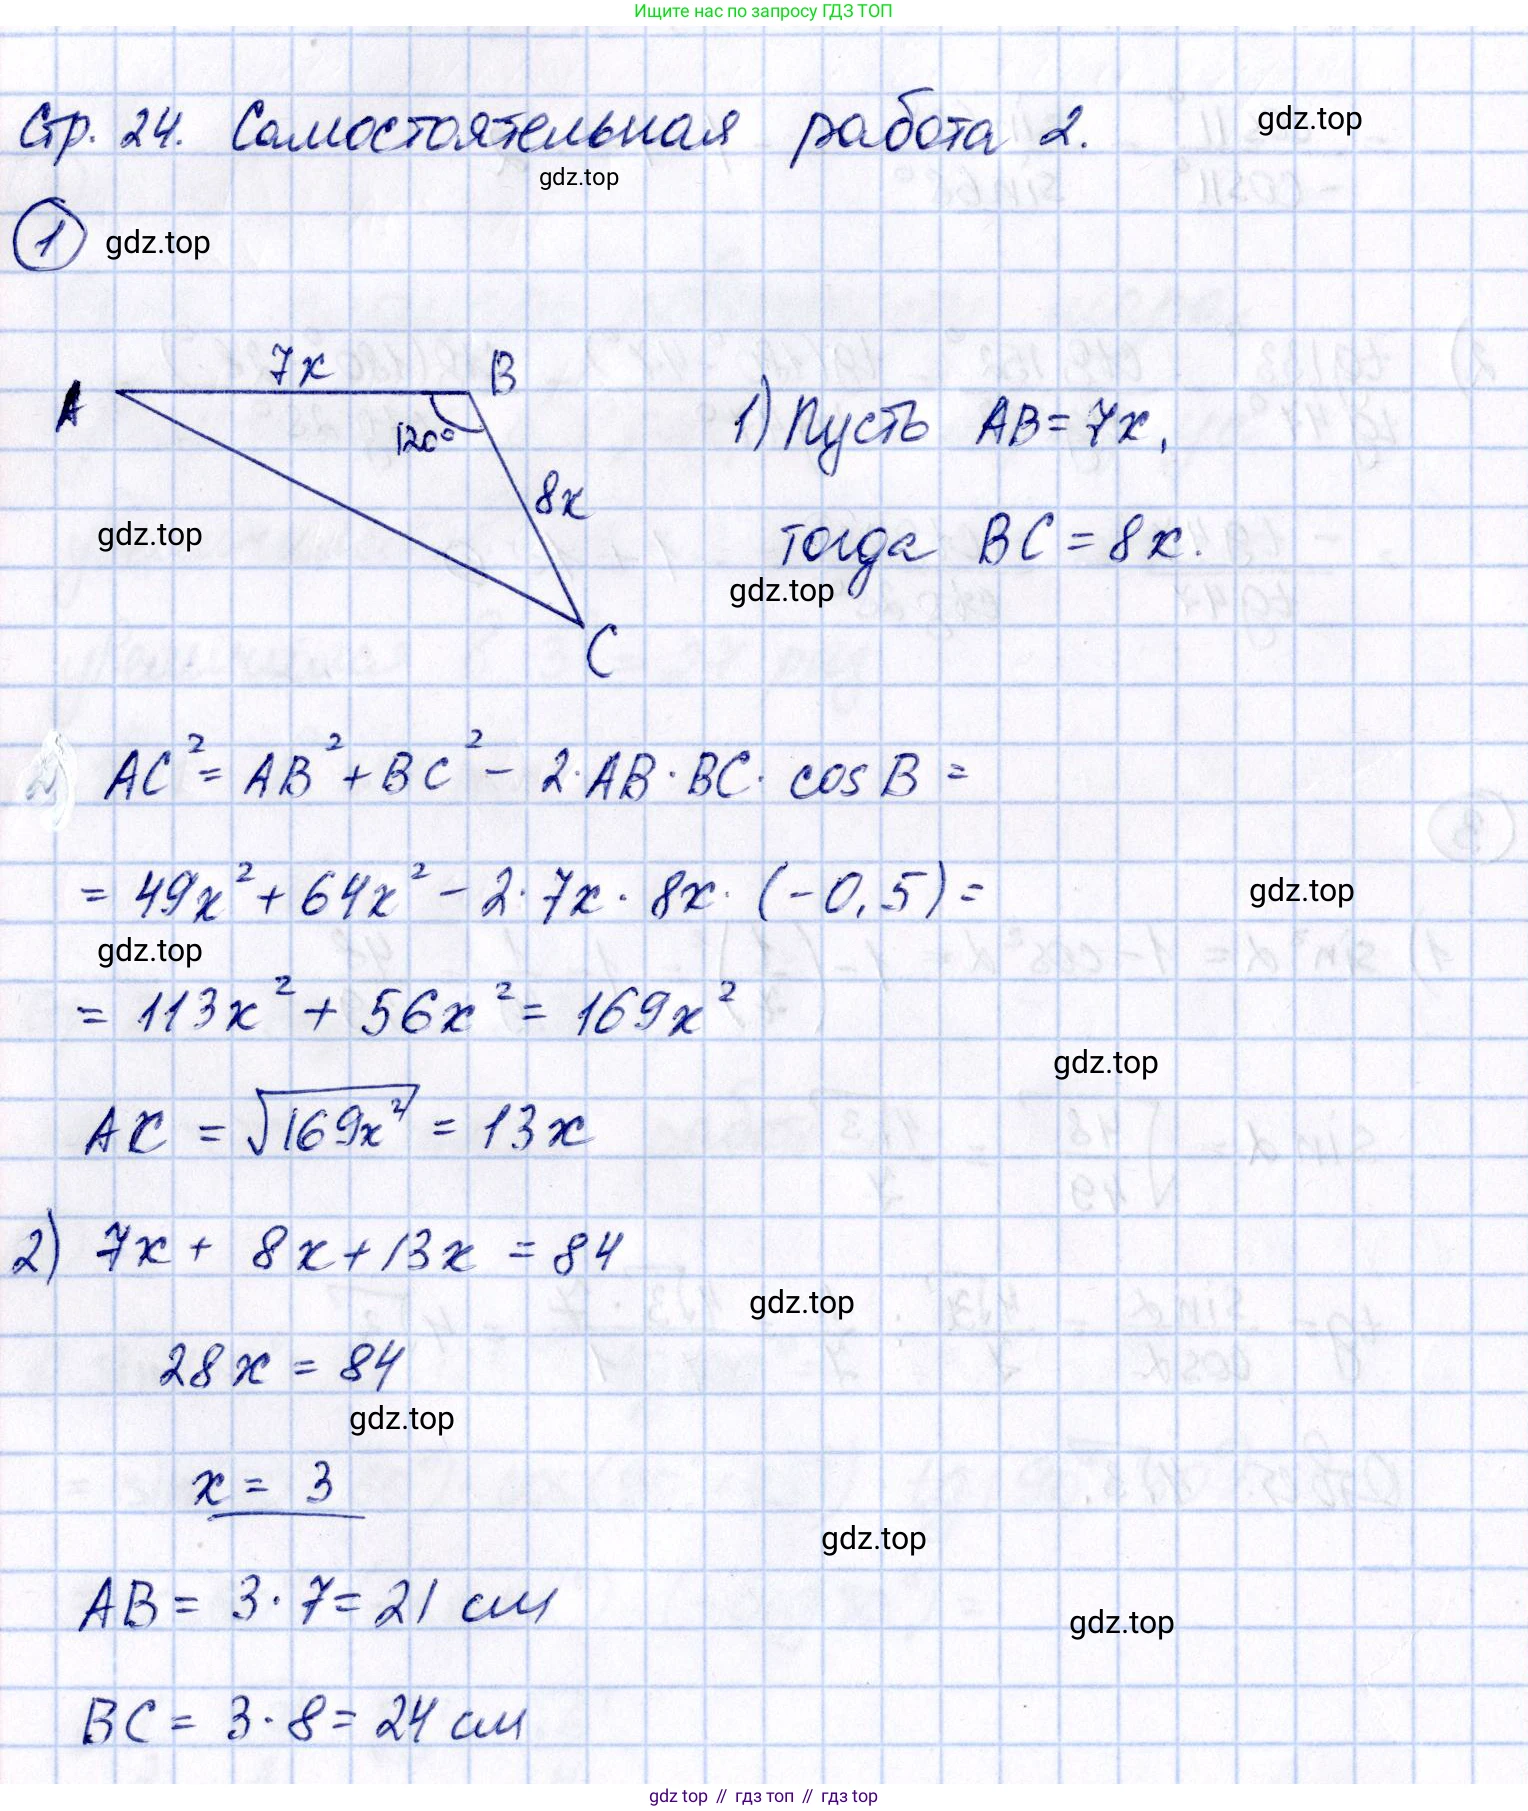 Ищите нас по запросу ГДЗ ТОП
Стр. 24. Самостоятельная работа 2.
gdz.top
gdz.top
1 gdz.top
7x
A B
120°
8x
C
1) Пусть AB = 7x,
тогда BC = 8x.
gdz.top
gdz.top
AC² = AB² + BC² - 2·AB·BC·cos B =
= 49x² + 64x² - 2·7x·8x·(-0,5) =
gdz.top
gdz.top
= 113x² + 56x² = 169x²
gdz.top
AC = √169x² = 13x
2) 7x + 8x + 13x = 84
gdz.top
28x = 84
gdz.top
x = 3
gdz.top
AB = 3·7 = 21 см
gdz.top
BC = 3·8 = 24 см
gdz top // гдз топ // гдз top